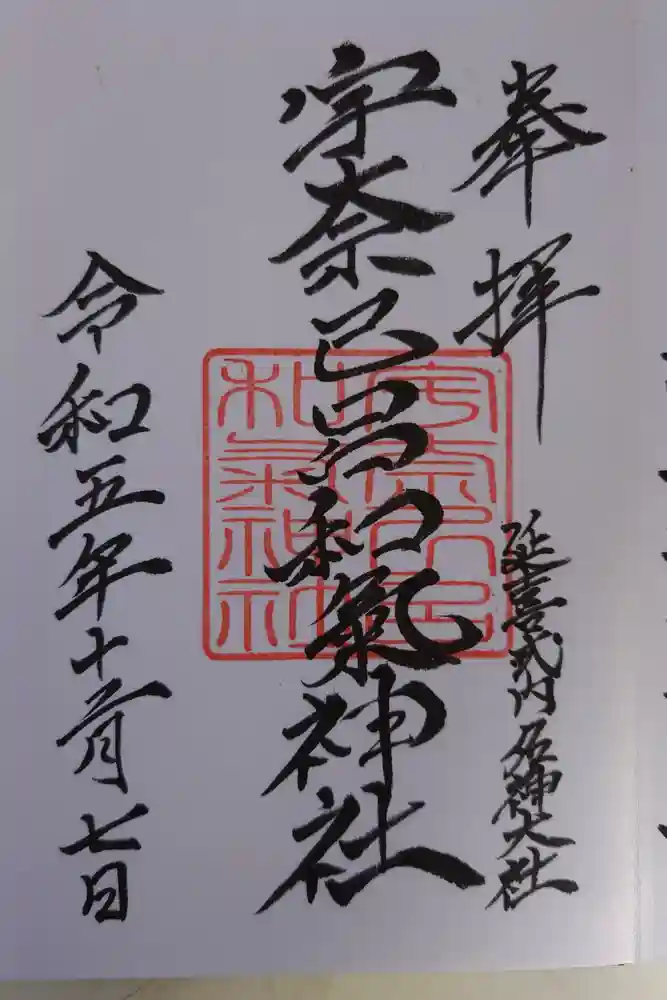 奉拝
延喜式内名神大社
宇奈己呂和氣神社
宇奈己呂
和氣神社
令和五年十二月七日